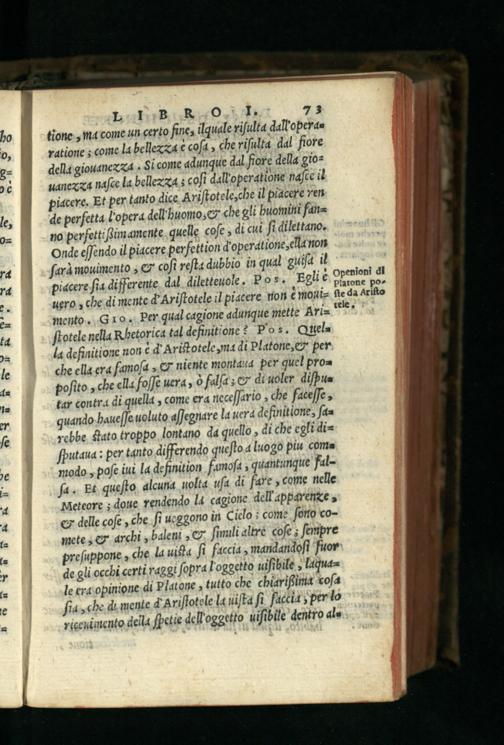 LIBRO I. 73
tione, ma come un certo fine, ilquale risulta dall'opera=
ratione; come la bellezza è cosa, che risulta dal fiore
della giouanezza. Si come adunque dal fiore della gio=
uanezza nasce la bellezza; cosi dall'operatione nasce il
piacere. Et per tanto dice Aristotele, che il piacere ren
de perfetta l'opera dell'huomo, & che gli huomini fan=
no perfettißimamente quelle cose, di cui si dilettano.
Onde essendo il piacere perfettion d'operatione, ella non
sarà mouimento, & cosi resta dubbio in qual guisa il
piacere sia differente dal diletteuole. Pos. Egli è
uero, che di mente d'Aristotele il piacere non è moui=
mento. Gio. Per qual cagione adunque mette Ari=
stotele nella Rhetorica tal definitione? Pos. Quel=
la definitione non è d'Aristotele, ma di Platone, & per
che ella era famosa, & niente montaua per quel pro=
posito, che ella fosse uera, ò falsa; & di uoler dispu=
tar contra di quella, come era necessario, che facesse,
quando hauesse uoluto assegnare la uera definitione, sa=
rebbe stato troppo lontano da quello, di che egli di=
sputaua: per tanto differendo questo a luogo piu com=
modo, pose iui la definition famosa, quantunque fal=
sa. Et questo alcuna uolta usa di fare, come nelle
Meteore; doue rendendo la cagione dell'apparenze,
& delle cose, che si ueggono in Cielo: come sono co=
mete, & archi, baleni, & simili altre cose; sempre
presuppone, che la uista si faccia, mandandosi fuor
de gli occhi certi raggi sopra l'oggetto uisibile, laqua=
le era opinione di Platone, tutto che chiarißima cosa
sia, che di mente d'Aristotele la uista si faccia, per lo
riceuimento della spetie dell'oggetto uisibile dentro al=
Openioni di
Platone po=
ste da Aristo
tele.